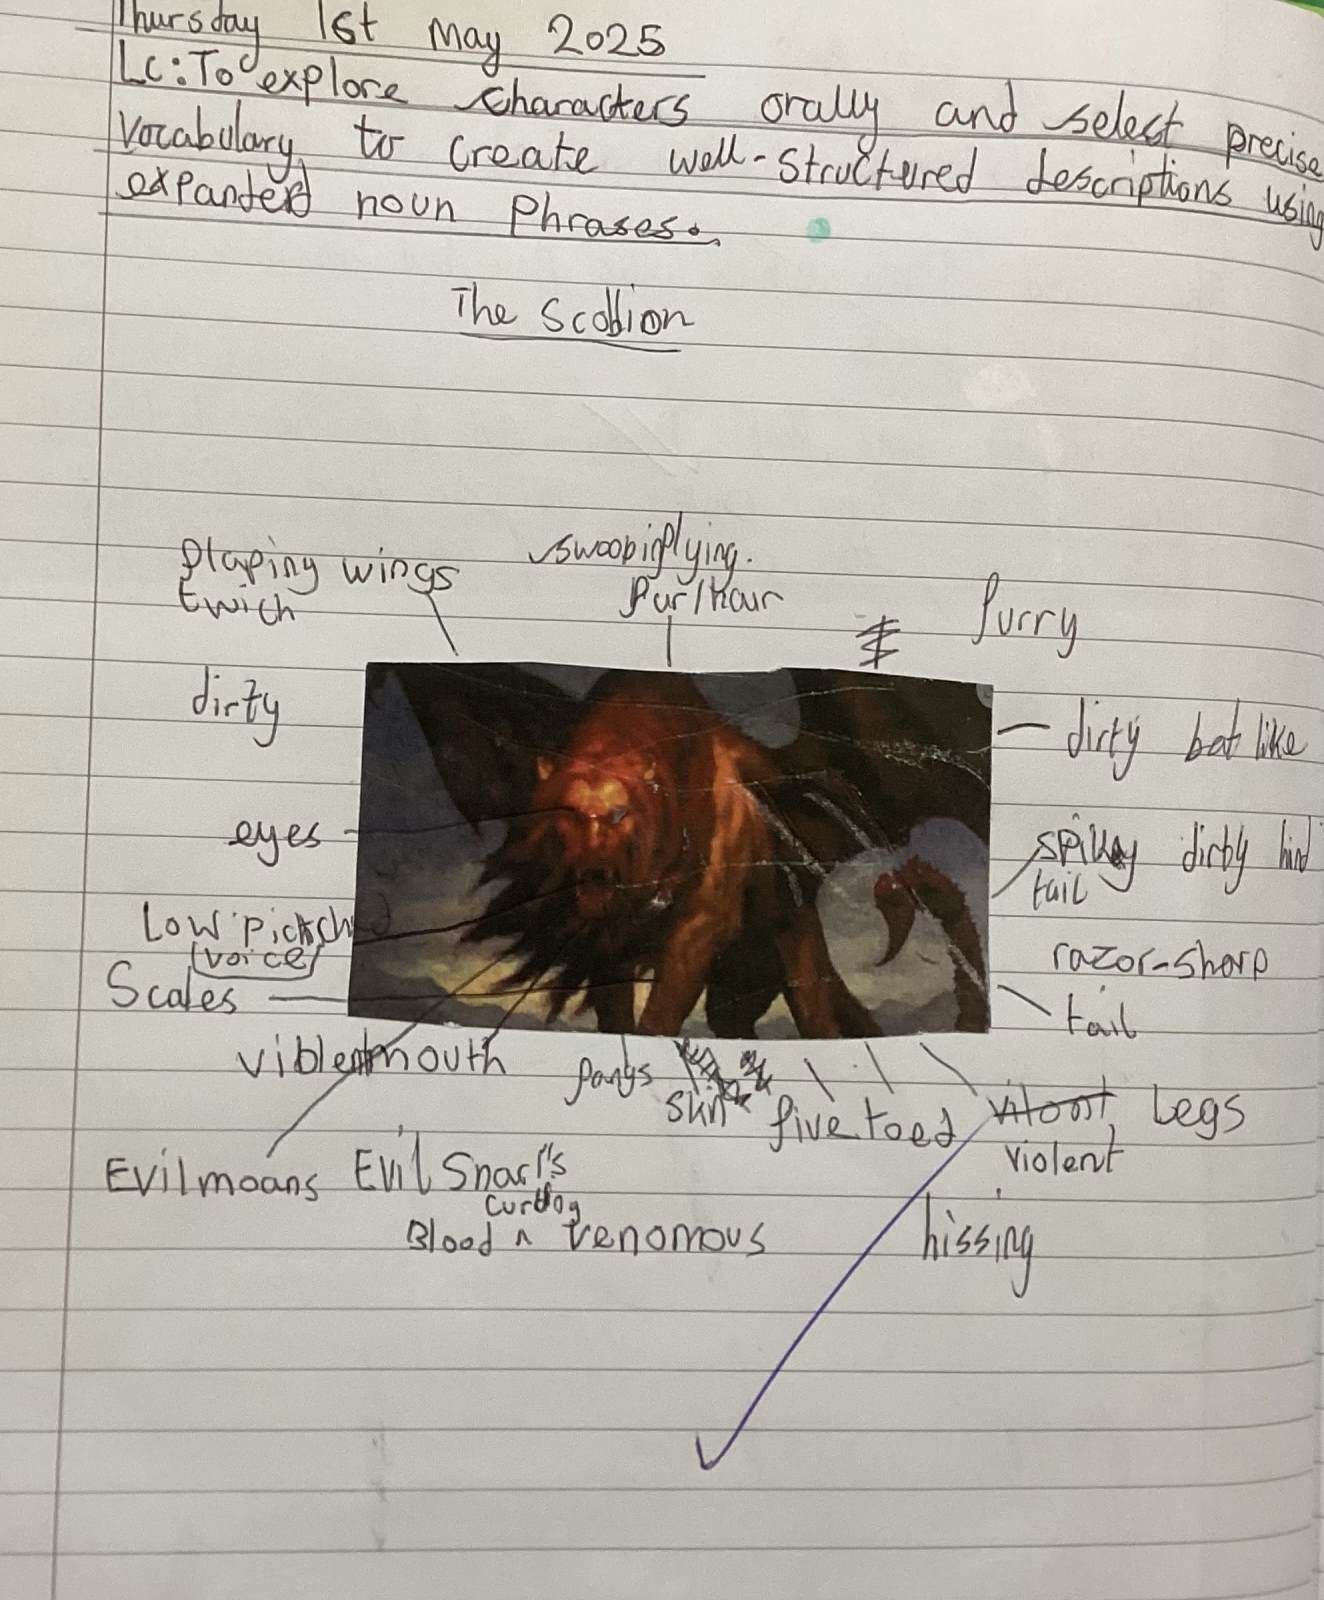 Thursday 1st May 2025
Lc: To explore characters orally and select precise
vocabulary to create well-structured descriptions using
expanded noun phrases.
The Scobbion
flaping wings
twich
swoobing flying.
fur/hair
furry
dirty
dirty bat like
eyes
spikey dirty hind
tail
Low pictched
(voice)
razor-sharp
tail
Scales
mouth
fangs
skin
five toed
Legs
violent
Evil moans
Evil Snarl's
curdling
Blood ^ venomous
hissing